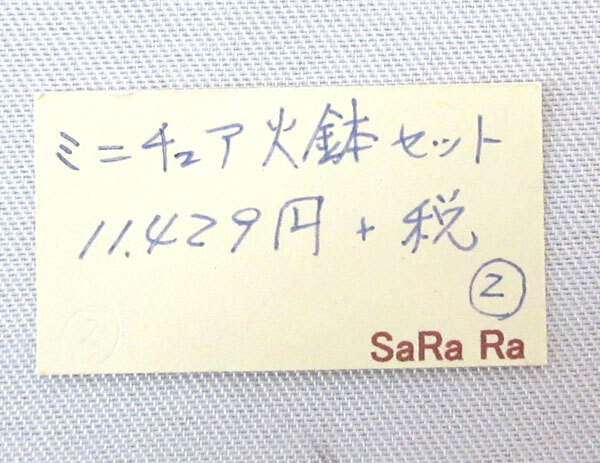 ミニチュア火鉢セット
11.429円+税
②
SaRa Ra